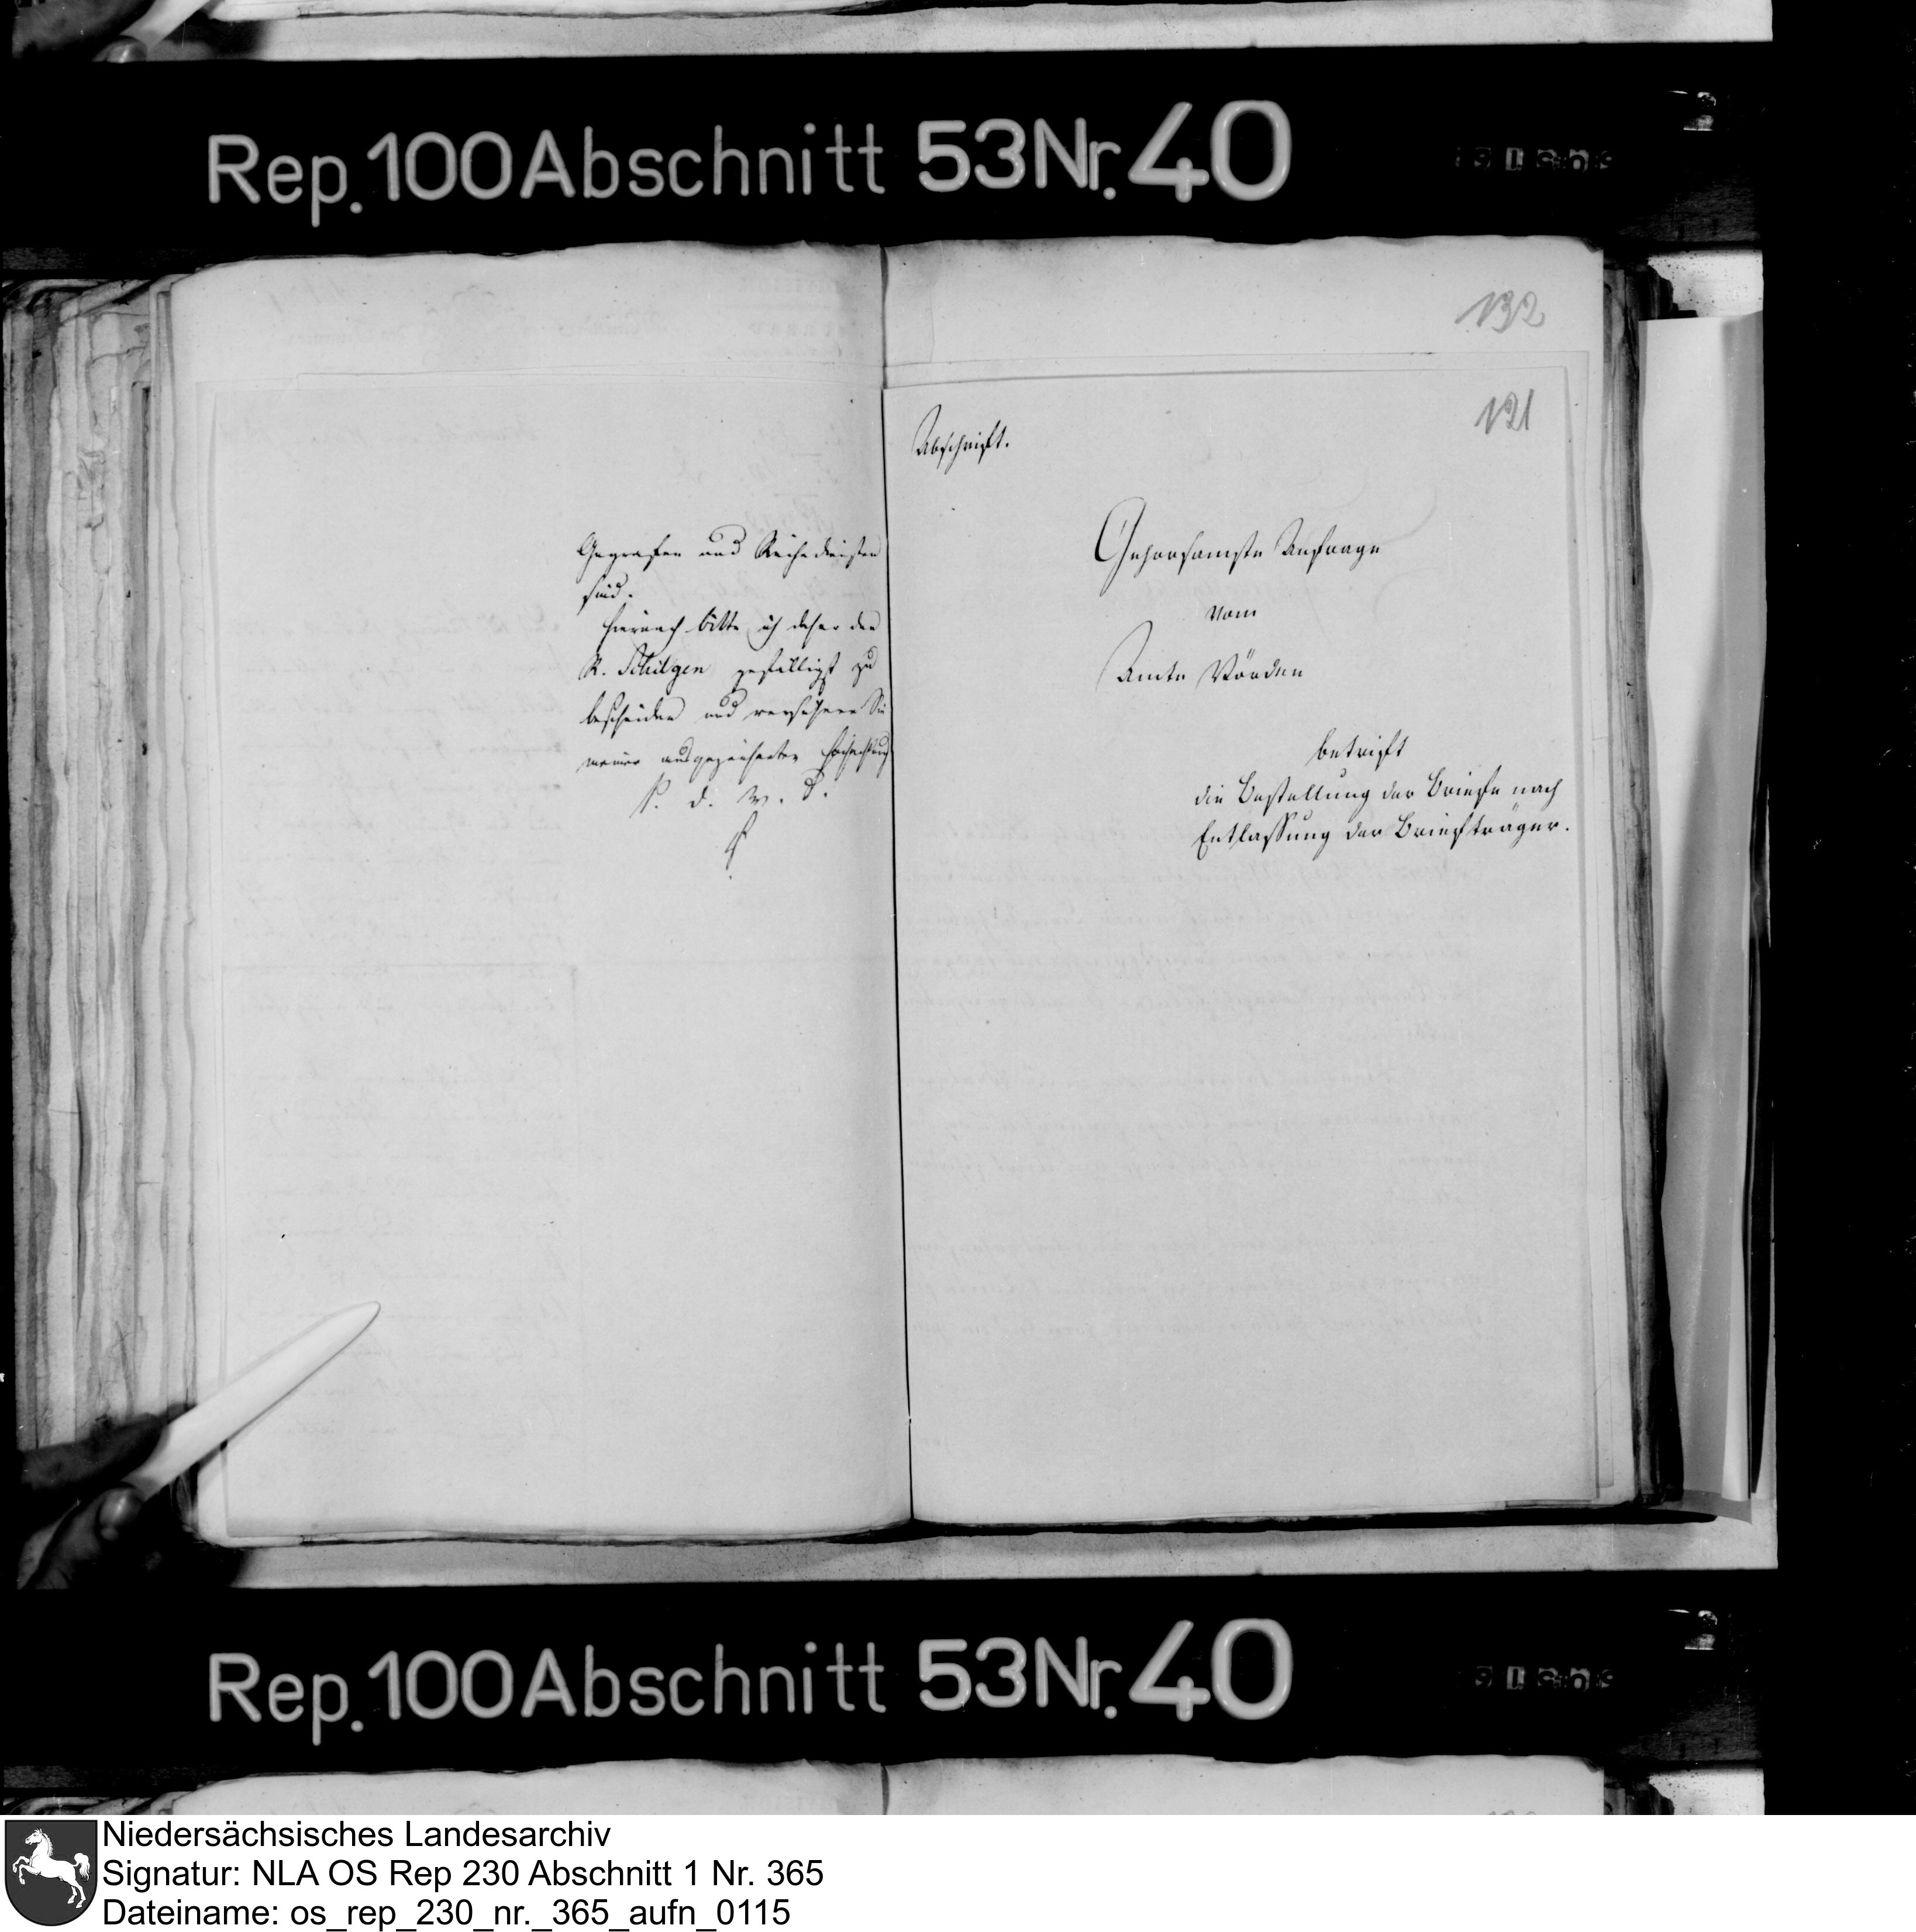 Rep. 100 Abschnitt 53 Nr. 40
132
121
Gografen und Reichediensten
sind.
Hiernach bitte ich daher den
R. Schilgen gefälligst zu
bescheiden und versichere Sie
meiner ausgezeichneten Hochachtung
P. d. w. d.
Abschrift.
Gehorsamste Anfrage
vom
Amte Vörden
betrift
die Bestellung der Briefe nach
Entlassung der Briefträger.
Rep. 100 Abschnitt 53 Nr. 40
Niedersächsisches Landesarchiv
Signatur: NLA OS Rep 230 Abschnitt 1 Nr. 365
Dateiname: os_rep_230_nr._365_aufn_0115